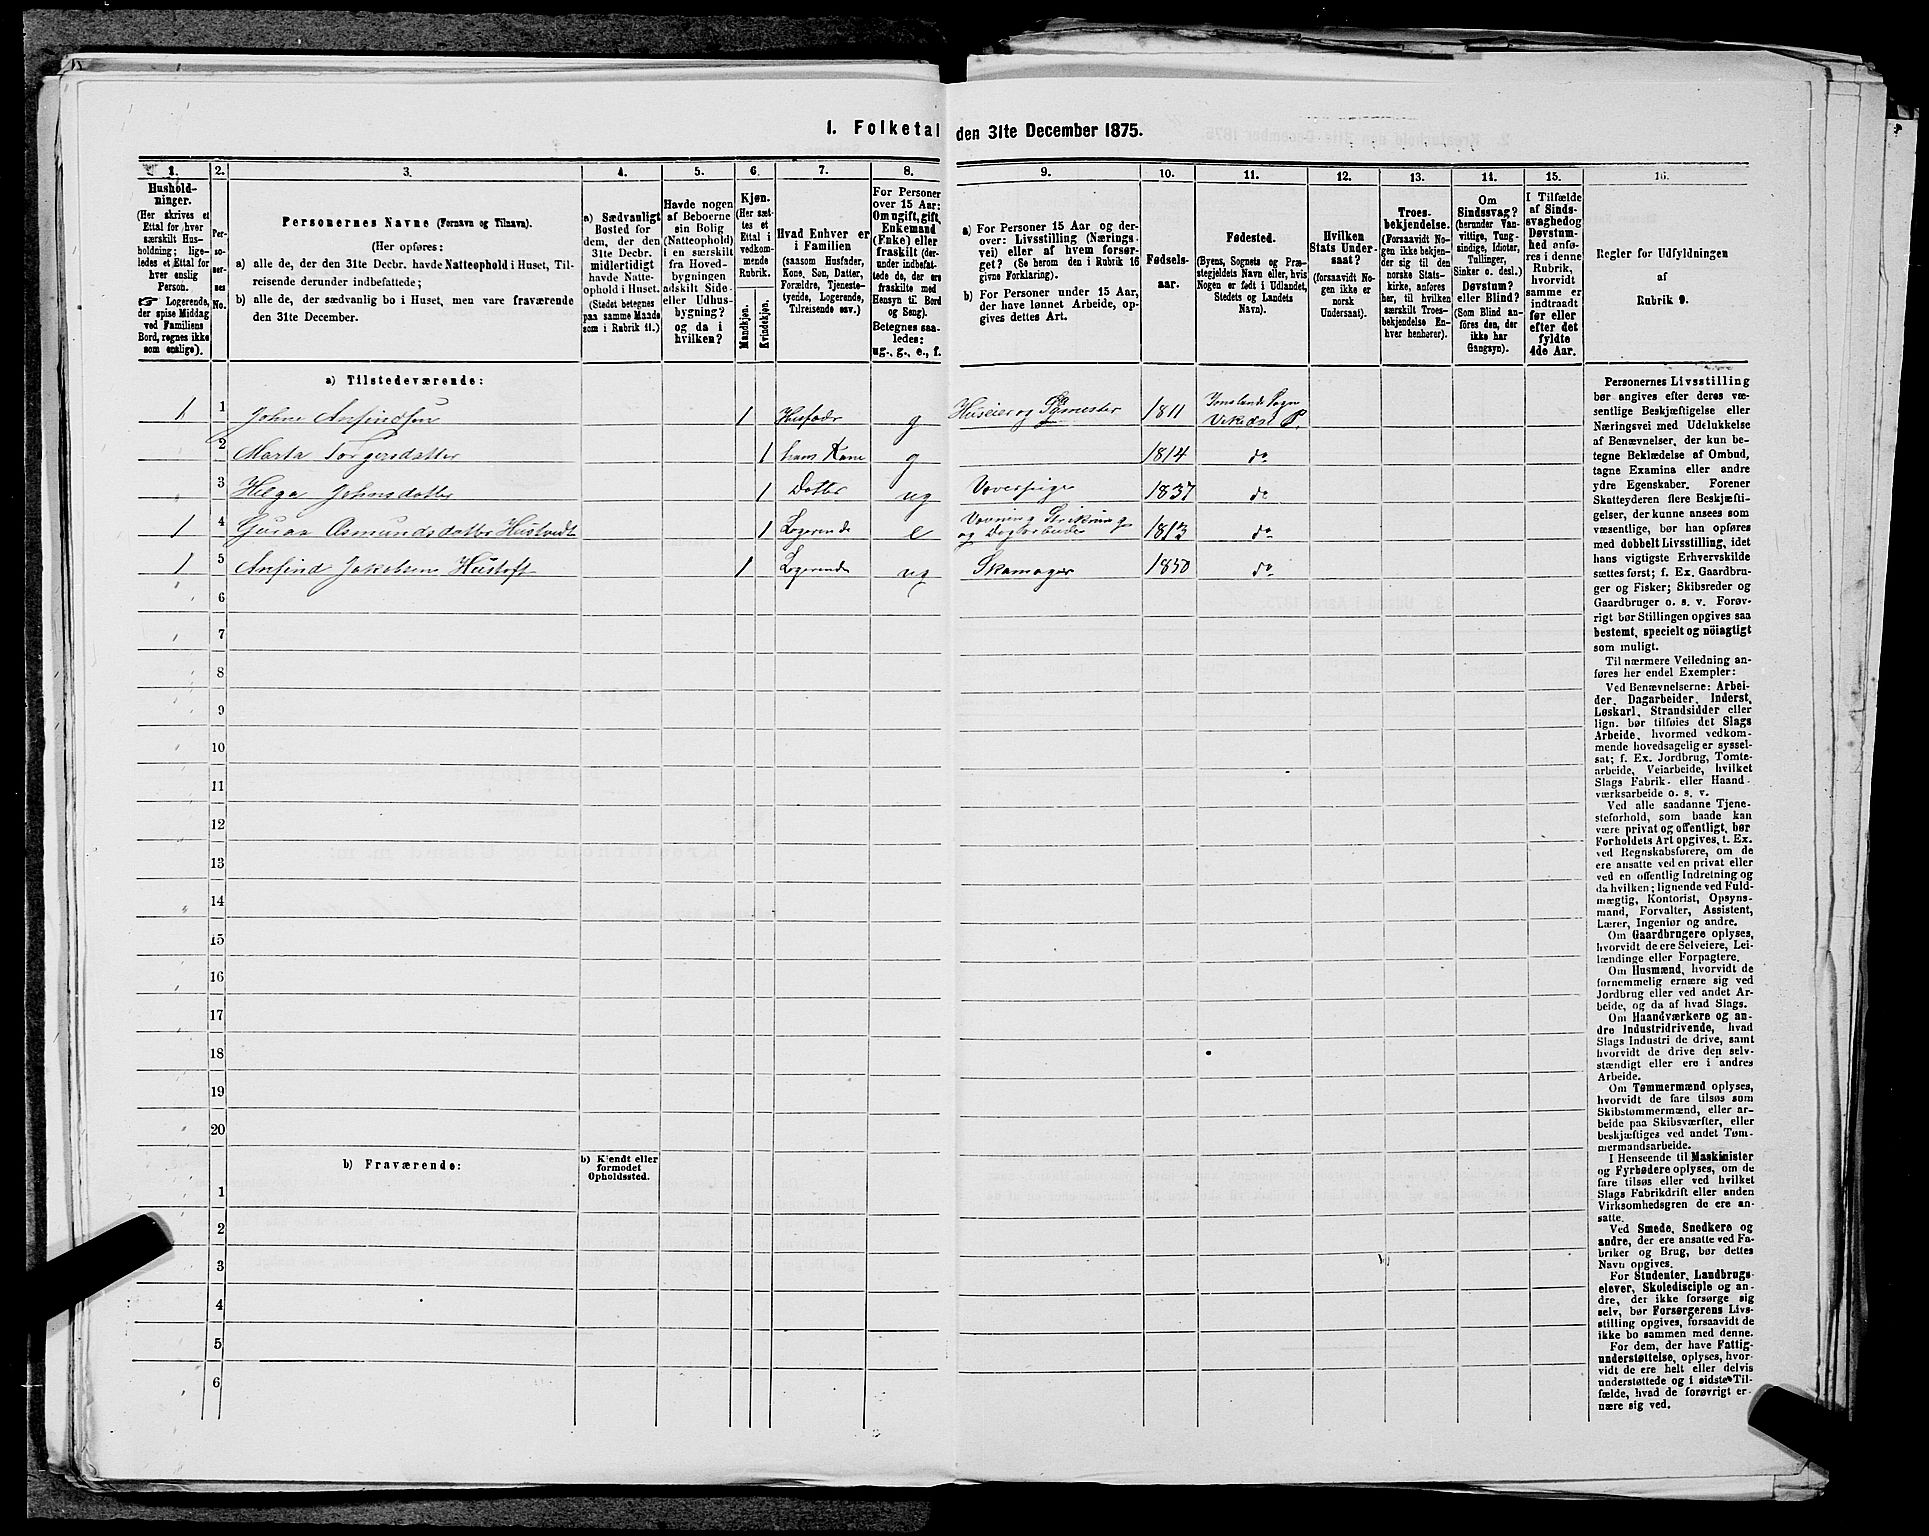 I. Folketal den 31te December 1875.
1.
Hushold-
ninger.
(Her skrives et
Ettal for hver
særskilt Hus-
holdning; lige-
ledes et Ettal for
hver enslig
Person.
☞ Logerende,
der spise Middag
ved Familiens
Bord, regnes ikke
som enslige).
2.
Per-
so-
ner-
nes
No.
3.
Personernes Navne (Fornavn og Tilnavn).
(Her opføres:
a) alle de, der den 31te Decbr. havde Natteophold i Huset, Til-
reisende derunder indbefattede;
b) alle de, der sædvanlig bo i Huset, men vare fraværende
den 31te December.
4.
a) Sædvanligt
Bosted for
dem, der den
31te Decbr.
midlertidigt
havde Natte-
ophold i Huset.
(Stedet betegnes
paa samme Maade
som i Rubrik 11.)
5.
Havde nogen
af Beboerne
sin Bolig
(Natteophold)
i en særskilt
fra Hoved-
bygningen
adskilt Side-
eller Udhus-
bygning?
og da i
hvilken?
6.
Kjøn.
(Her sæt-
tes et
Ettal i
vedkom-
mende
Rubrik.
Mandkjøn.
Kvindekjøn.
7.
Hvad Enhver er
i Familien
(saasom Husfader,
Kone, Søn, Datter,
Forældre, Tjeneste-
tyende, Logerende,
Tilreisende osv.)
8.
For Personer
over 15 Aar:
Om ugift, gift,
Enkemand
(Enke) eller
fraskilt (der-
under indbefat-
tede de, der ere
fraskilte med
Hensyn til Bord
og Seng).
Betegnes saa-
ledes:
ug., g., e., f.
9.
a) For Personer 15 Aar og der-
over: Livsstilling (Nærings-
vei) eller af hvem forsør-
get? (Se herom den i Rubrik 16
givne Forklaring).
b) For Personer under 15 Aar,
der have lønnet Arbeide, op-
gives dettes Art.
10.
Fødsels-
aar.
11.
Fødested.
(Byens, Sognets og Præ-
stegjeldets Navn eller, hvis
Nogen er født i Udlandet,
Stedets og Landets
Navn).
12.
Hvilken
Stats Under-
saat?
(forsaavidt No-
gen ikke er
norsk
Undersaat).
13.
Troes-
bekjendelse.
(Forsaavidt No-
gen ikke bekjen-
der sig til den
norske Stats-
kirke, anføres
her, til hvilken
særskilt Troes-
bekjendelse En-
hver henhører).
14.
Om
Sindssvag?
(herunder Van-
vittige, Tung-
sindige, Idioter,
Tullinger,
Sinker o. desl.)
Døvstum?
eller Blind?
(Som Blind an-
føres den, der
ikke har
Gangsyn).
15.
I Tilfælde
af Sinds-
svaghed og
Døvstum-
hed anfø-
res i denne
Rubrik,
hvorvidt
samme er
indtraadt
før eller
efter det
fyldte
4de Aar.
16.
Regler for Udfyldningen
af
Rubrik 9.
a) Tilstedeværende:
1 1 John Anfindsen 1 Husfader g Huseier og Sømester 1811 Sogn Vikedal P.
2 Marta Torgersdatter 1 hans Kone g 1814 do
3 Helga Johnsdatter 1 Datter ug Væverpige 1837 do
1 4 Guran Osmundsdatter Hustvedt 1 Logerende e Vævning Strikning og Dagarbeider 1813 do
1 5 Anfind Jakobsen Hustoft 1 Logerende ug Skomager 1850 do
6
7
8
9
10
11
12
13
14
15
16
17
18
19
20
b) Fraværende:
b) Kjendt eller
formodet
Opholdssted.
1
2
3
4
5
6
Personernes Livsstilling
bør angives efter deres væ-
sentlige Beskjæftigelse eller
Næringsvei med Udelukkelse
af Benævnelser, der kun be-
tegne Beklædelse af Ombud,
tagne Examina eller andre
ydre Egenskaber. Forener
Skatteyderen flere Beskjæfti-
gelser, der kunne ansees som
væsentlige, bør han opføres
med dobbelt Livsstilling, idet
hans vigtigste Erhvervskilde
sættes først; f. Ex. Gaardbru-
ger og Fisker; Skibsreder og
Gaardbruger o. s. v. Forøv-
rigt bør Stillingen opgives saa
bestemt, specielt og nöiagtigt
som muligt.
Til nærmere Veiledning an-
føres her endel Exempler:
Ved Benævnelserne: Arbei-
der, Dagarbeider, Inderst,
Løskarl, Strandsidder eller
lign. bør tilføies det Slags
Arbeide, hvormed vedkom-
mende hovedsagelig er syssel-
sat; f. Ex. Jordbrug, Tomte-
arbeide, Veiarbeide, hvilket
Slags Fabrik- eller Haand-
værksarbeide o. s. v.
Ved alle saadanne Tjene-
steforhold, som baade kan
være privat og offentligt, bør
Forholdets Art opgives, t. Ex.
ved Regnskabsførere, om de
ere ansatte ved en privat eller
ved en offentlig Indretning og
da hvilken; lignende ved Fuld-
mægtig, Kontorist, Opsyns-
mand, Forvalter, Assistent,
Lærer, Ingeniør og andre.
Om Gaardbrugere oplyses,
hvorvidt de ere Selveiere, Lei-
lændinge eller Forpagtere.
Om Husmænd, hvorvidt de
fornemmelig ernære sig ved
Jordbrug eller ved andet Ar-
beide, og da af hvad Slags.
Om Haandværkere og an-
dre Industridrivende, hvad
Slags Industri de drive, samt
hvorvidt de drive den selv-
stændigt eller ere i andres
Arbeide.
Om Tømmermænd oplyses,
hvorvidt de fare tilsøs som
Skibstømmermænd, eller ar-
beide paa Skibsværfter, eller
beskjæftiges ved andet Tøm-
mermandsarbeide.
I Henseende til Maskinister
og Fyrbødere oplyses, om de
fare tilsøs eller ved hvilket
Slags Fabrikdrift eller anden
Virksomhedsgren de ere an-
satte.
Ved Smede, Snedkere og
andre, der ere ansatte ved Fa-
briker og Brug, bør dettes
Navn opgives.
For Studenter, Landbrugs-
elever, Skoledisciple og an-
dre, der ikke forsørge sig
selv, bør Forsørgerens Livs-
stilling opgives, forsaavidt de
ikke bo sammen med denne.
For dem, der have Fattig-
understøttelse, oplyses, hvor-
vidt de ere helt eller delvis
understøttede og i sidste Til-
fælde, hvad de forøvrigt er-
nære sig ved.